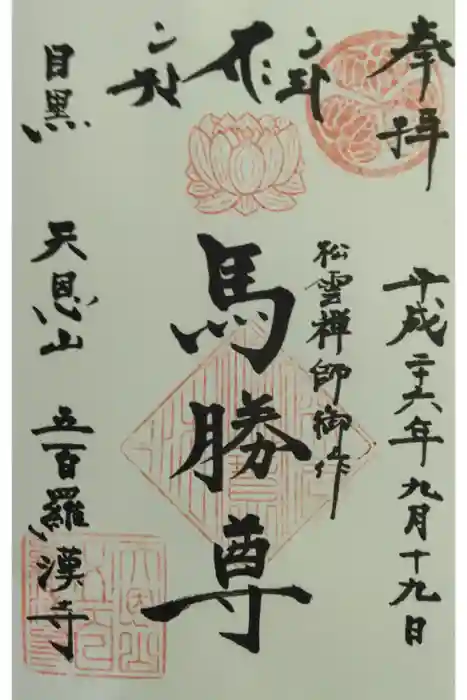 奉拝
平成二十六年九月十九日
松雲禅師御作
馬勝尊
目黒
天恩山
五百羅漢寺